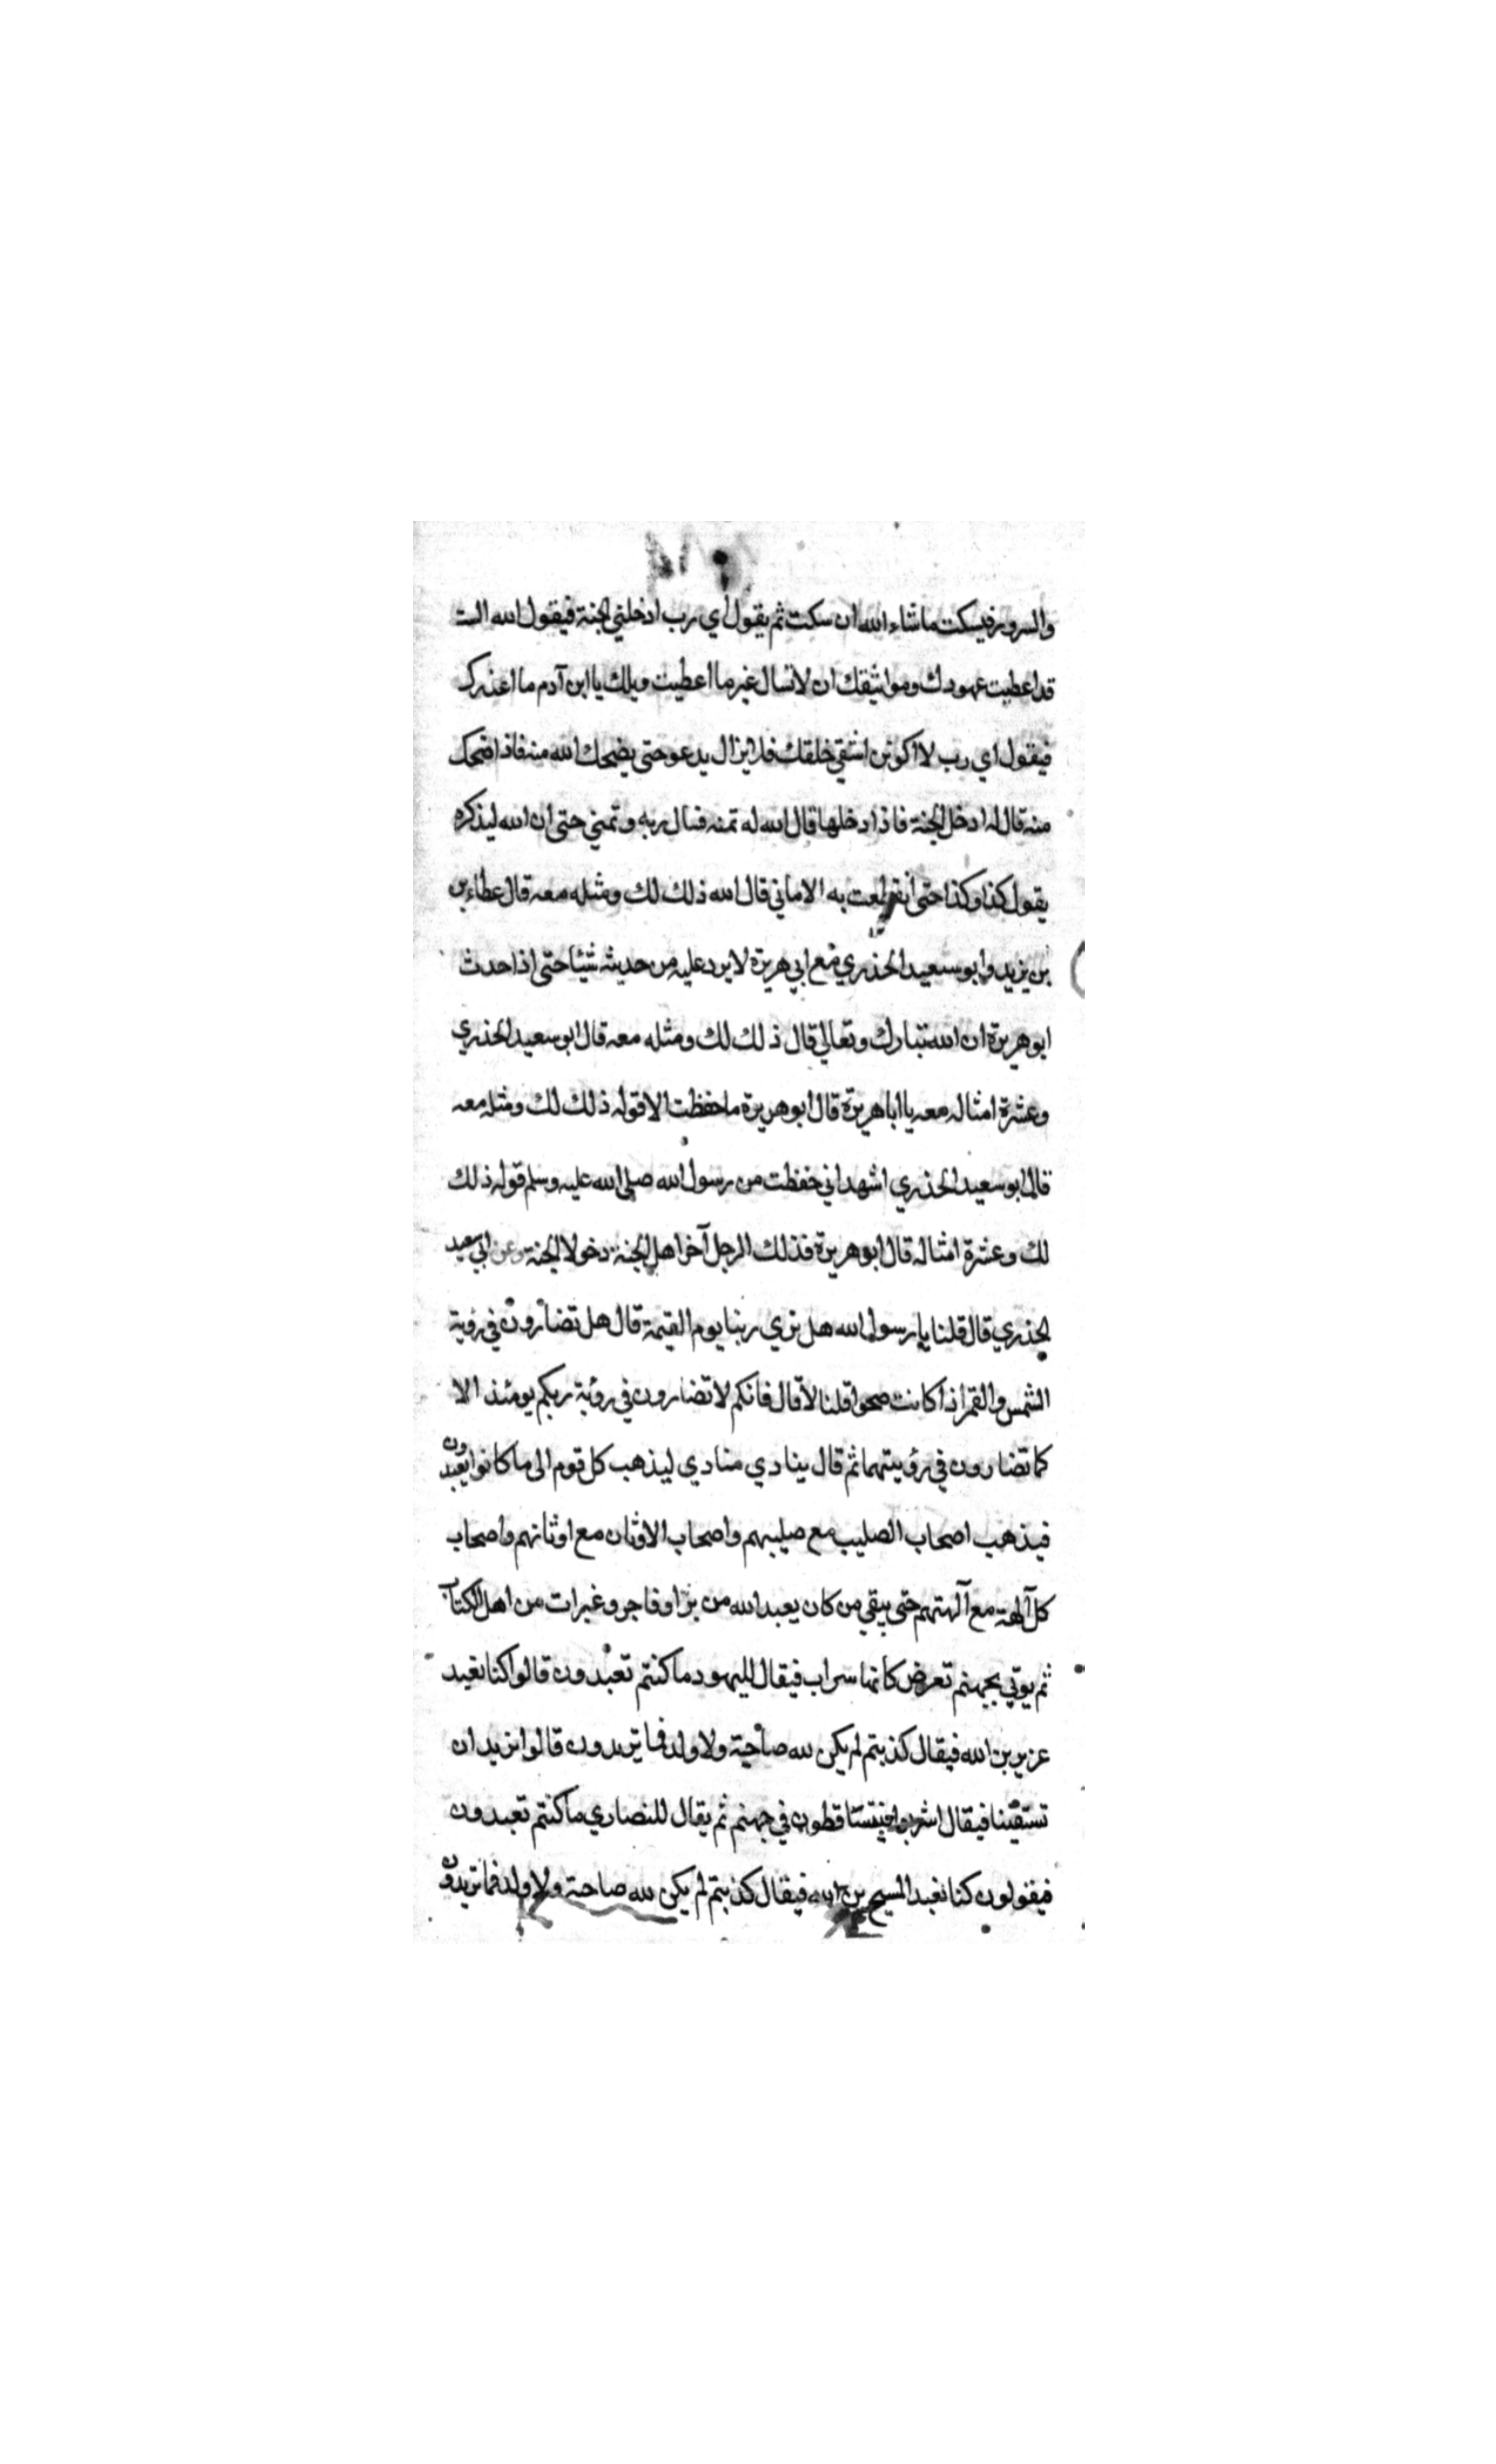 والسرور فيسكت ماشاء الله ان سكت ثم يقول اي رب ادخلني الجنة فيقول الله الست
قد اعطيت عهودك ومواثيقك ان لا تسال غير ما اعطيت ويلك يا ابن آدم ما اغدرك
فيقول اي رب لا اكونن اشقي خلقك فلا يزال يدعو حتى يضحك الله منه فاذا ضحك
منه قال له ادخل الجنة فاذا دخلها قال الله له تمنه فسال ربه وتمني حتى ان الله ليذكره
يقول كذا وكذا حتى انقطعت به الاماني قال الله ذلك لك ومثله معه قال عطاء بن
بن يزيد وابو سعيد الخذري مع ابي هريرة لا يرد عليه من حديثه شيئا حتى اذا حدث
ابو هريرة ان الله تبارك وتعالي قال ذلك لك ومثله معه قال ابو سعيد الخذري
وعشرة امثاله معه يا ابا هريرة قال ابو هريرة ما حفظت الا قوله ذلك لك ومثله معه
قال ابو سعيد الخذري اشهد اني حفظت من رسول الله صلى الله عليه وسلم قوله ذلك
لك وعشرة امثاله قال ابو هريرة فذلك الرجل آخر اهل الجنة دخولا الجنة وعن ابي سعيد
الخذري قال قلنا يا رسول الله هل نري ربنا يوم القيمة قال هل تضارون في رؤية
الشمس والقمر اذا كانت صحوا قلنا لا قال فانكم لا تضارون في رؤية ربكم يومئذ الا
كما تضارون في رؤيتهما ثم قال ينادي منادي ليذهب كل قوم الى ما كانوا يعبدون
فيذهب اصحاب الصليب مع صليبهم واصحاب الاوثان مع اوثانهم واصحاب
كل آلهة مع آلهتهم حتى يبقي من كان يعبد الله من بر او فاجر وغبرات من اهل الكتاب
ثم يوتي بجهنم تعرض كانها سراب فيقال لليهود ما كنتم تعبدون قالوا كنا نعبد
عزير بن الله فيقال كذبتم لم يكن لله صاحبة ولا ولد فما تريدون قالوا نريد ان
تستقينا فيقال اشربوا فيتساقطون في جهنم ثم يقال للنصاري ما كنتم تعبدون
فيقولون كنا نعبد المسيح بن الله فيقال كذبتم لم يكن لله صاحبة ولا ولد فما تريدون